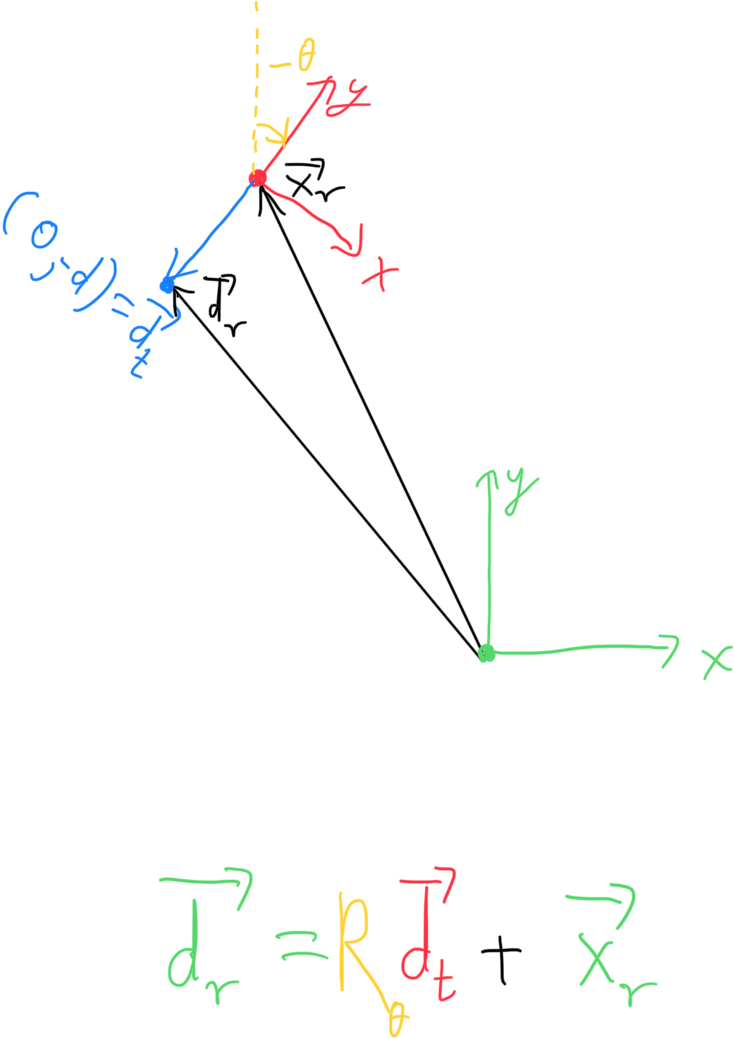 -θ
y
x⃗_r
x
(0,-d) = d⃗_t
d⃗_r
y
x
d⃗_r = R_θ d⃗_t + x⃗_r